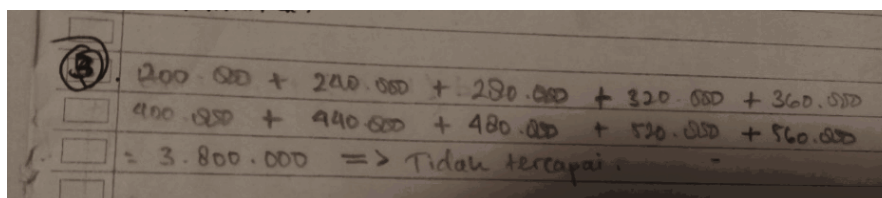 3. 200.000 + 240.000 + 280.000 + 320.000 + 360.000
400.000 + 440.000 + 480.000 + 520.000 + 560.000
= 3.800.000 => Tidak tercapai.